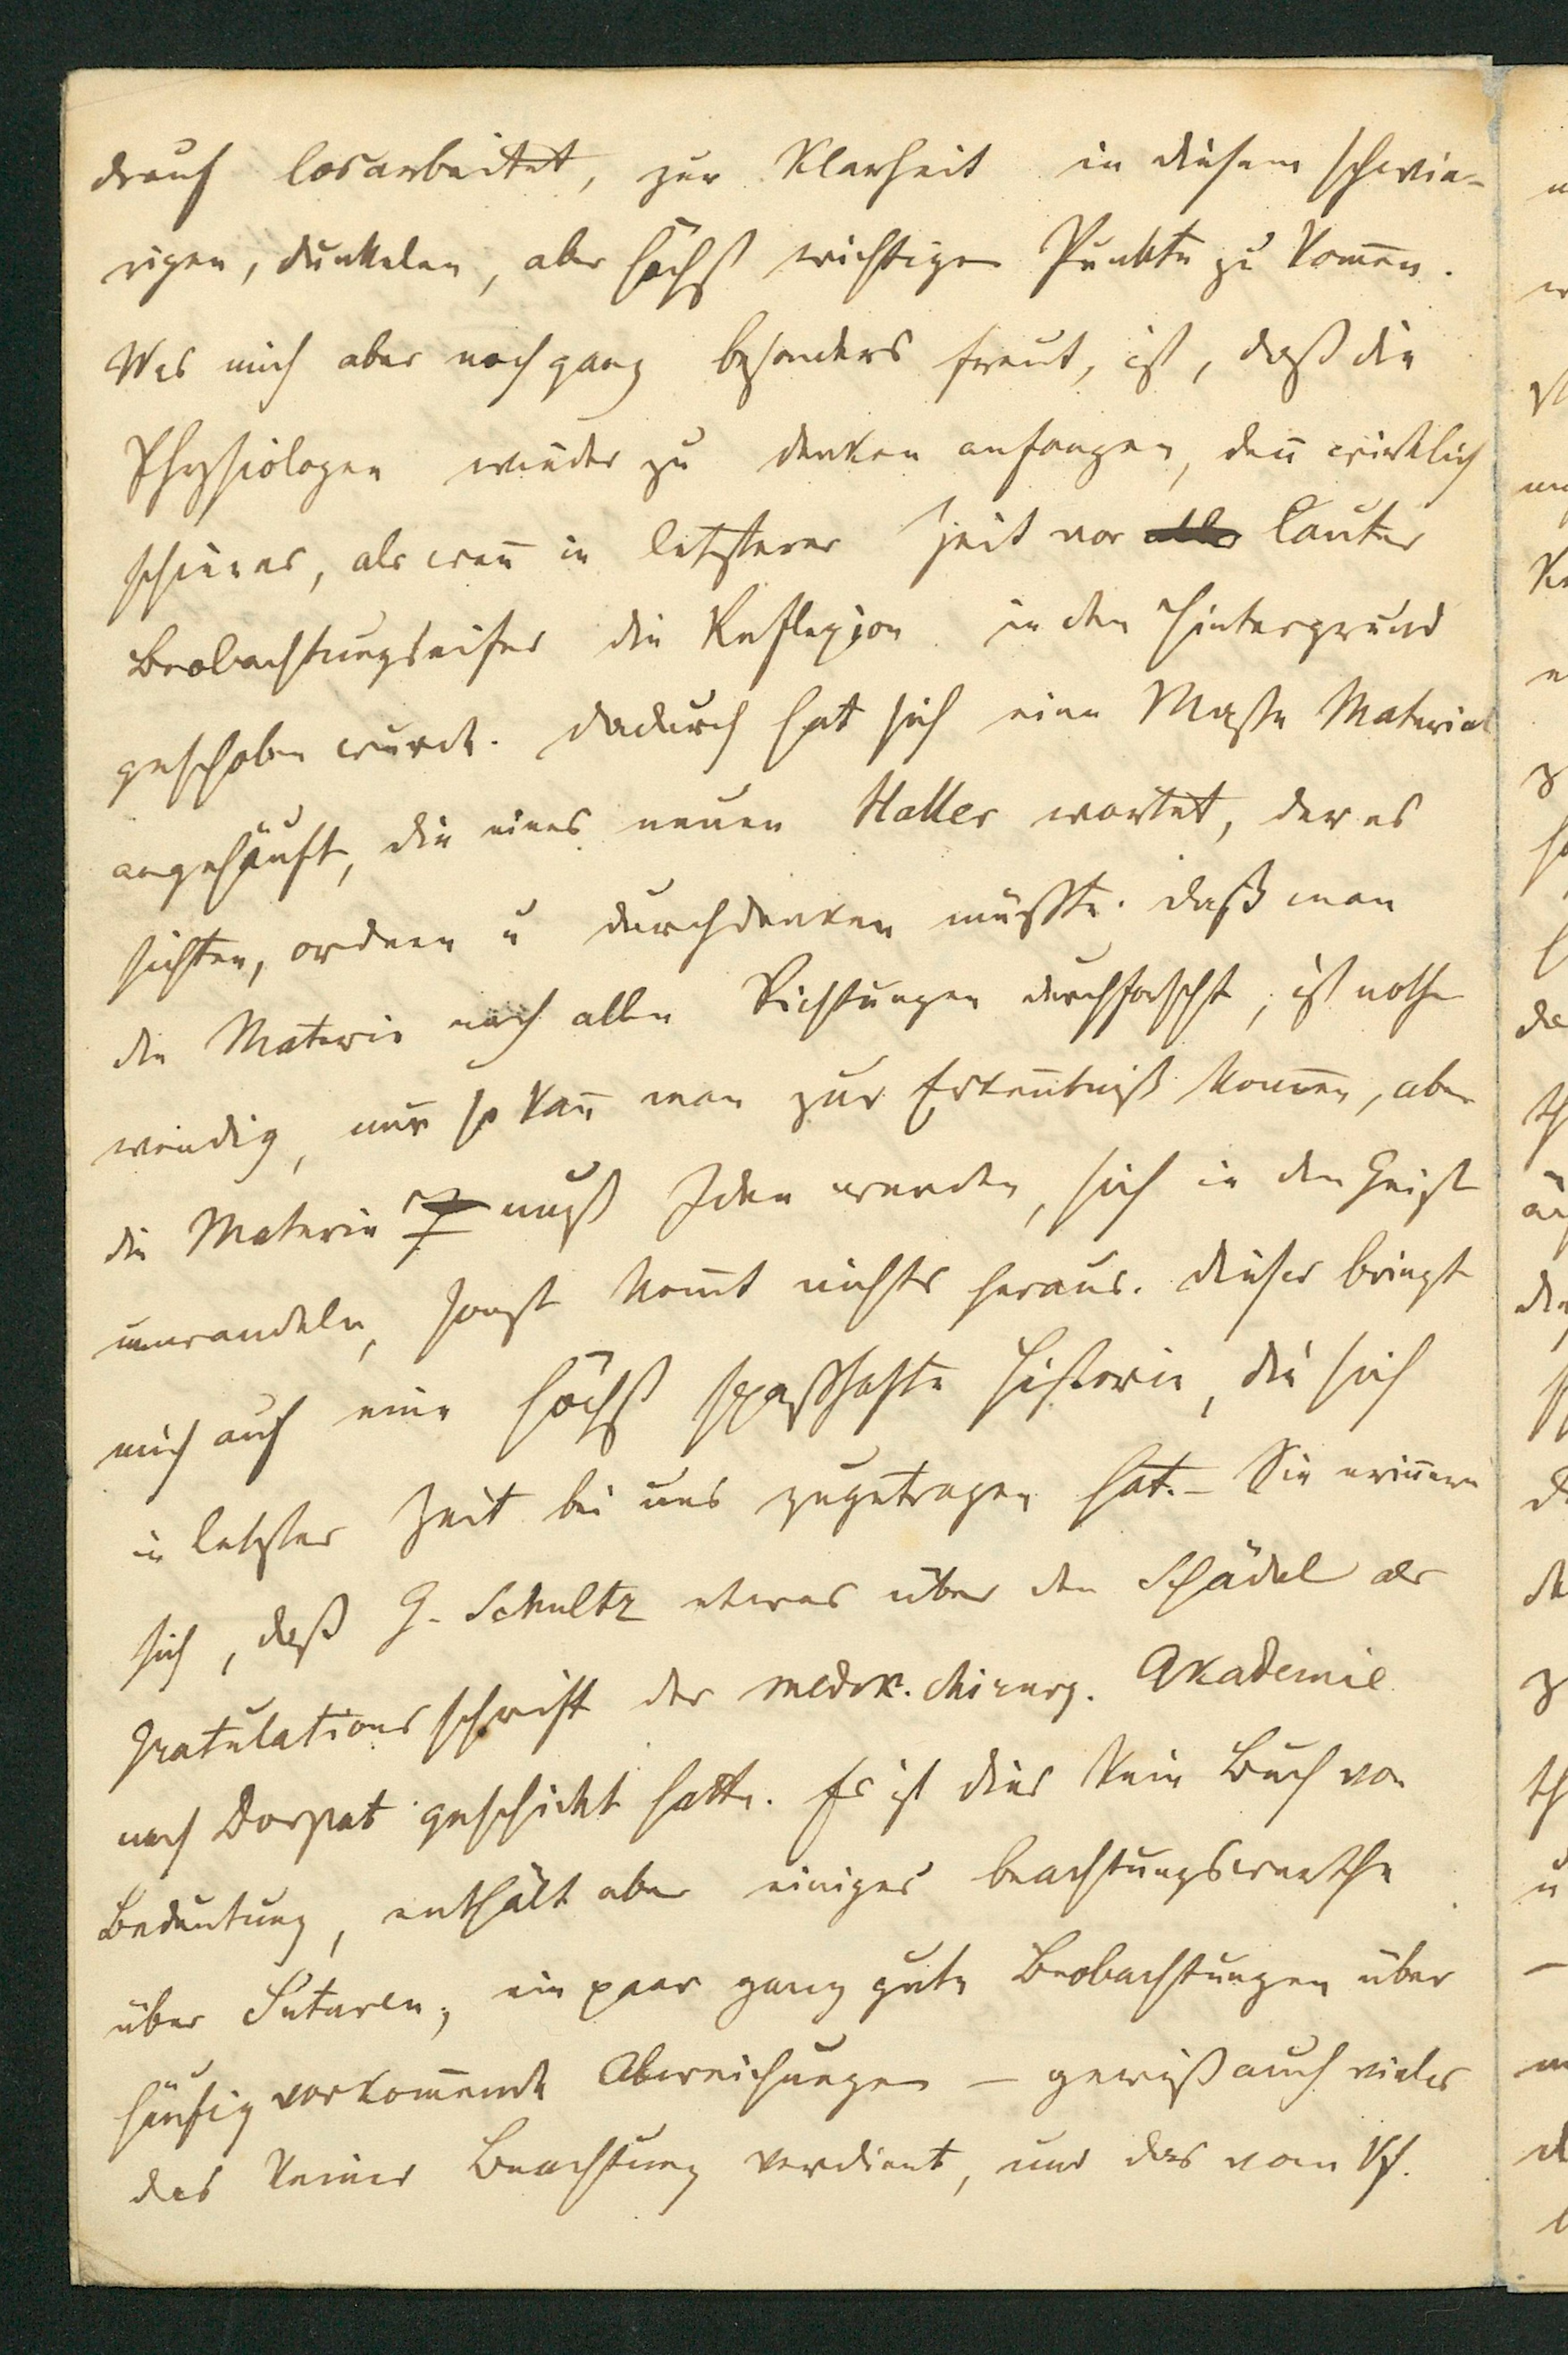 drauf losarbeitet, zur Klarheit in diesem schwie-
rigen, dunkelen, aber höchst wichtigen Punkte zu kom̄en.
Was mich aber noch ganz besonders freut, ist, daß die
Physiologen wieder zu denken anfangen, den̄ wirklich
schien es, als wen̄ in letzterer Zeit vor aller lauter
Beobachtungseifer die Reflexion in den Hintergrund
geschoben wurde. Dadurch hat sich eine Masse Material
angehäuft, die eines neuen Haller wartet, der es
sichten, ordnen u durchdenken müsste. Daß man
die Materie nach allen Richtungen durchforscht, ist noth
wendig, nur so kan̄ man zur Erken̄tniß kom̄en, aber
die Materie muß Idee werden, sich in den Geist
umwandeln, sonst kom̄t nichts heraus. Dieses bringt
mich auf eine höchst spasshafte Historie, die sich
in letzter Zeit bei uns zugetragen hat. – Sie erin̄ern
sich, daß G. Schultz etwas über den Schädel als
Gratulationsschrift der medik. chirurg. Akademie
nach Dorpat geschickt hatte. Es ist dies kein Buch von
Bedeutung, enthält aber einiges beachtungswerthe
über Suturen, ein paar ganz gute Beobachtungen über
häufig vorkom̄ende Abweichungen – gewiß auch vieles
das keine Beachtung verdient, und das vom Vf.